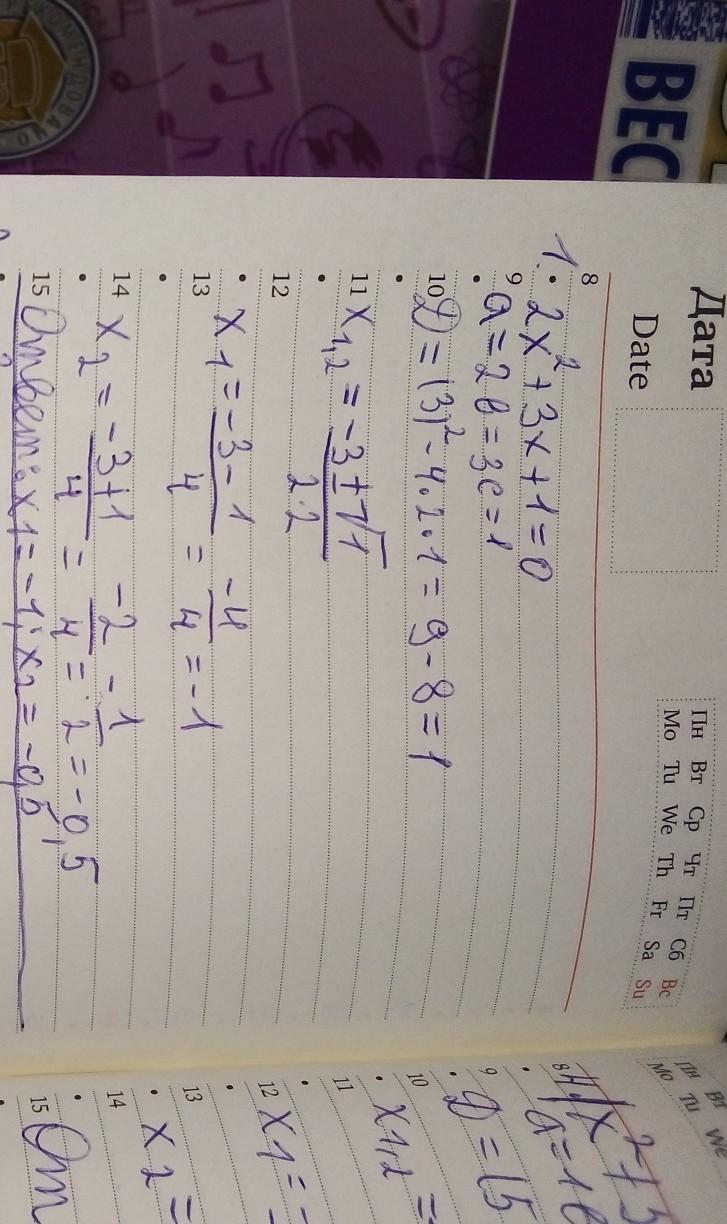 ВЕС
Дата
Date
Пн Вт Ср Чт Пт Сб Вс
Mo Tu We Th Fr Sa Su
8
1. 2x² + 3x + 1 = 0
9 a = 2 в = 3 c = 1
10 D = (3)² - 4·2·1 = 9 - 8 = 1
11 x₁,₂ = (-3 ± √1)/(2·2)
12
13 x₁ = (-3 - 1)/4 = -4/4 = -1
14 x₂ = (-3 + 1)/4 = -2/4 = -1/2 = -0,5
15 Ответ: x₁ = -1; x₂ = -0,5
Пн Вт
Mo Tu We
8
9 D = 15
10 x₁,₂ =
11
12 x₁ = -
13
14 x₂ =
15 От